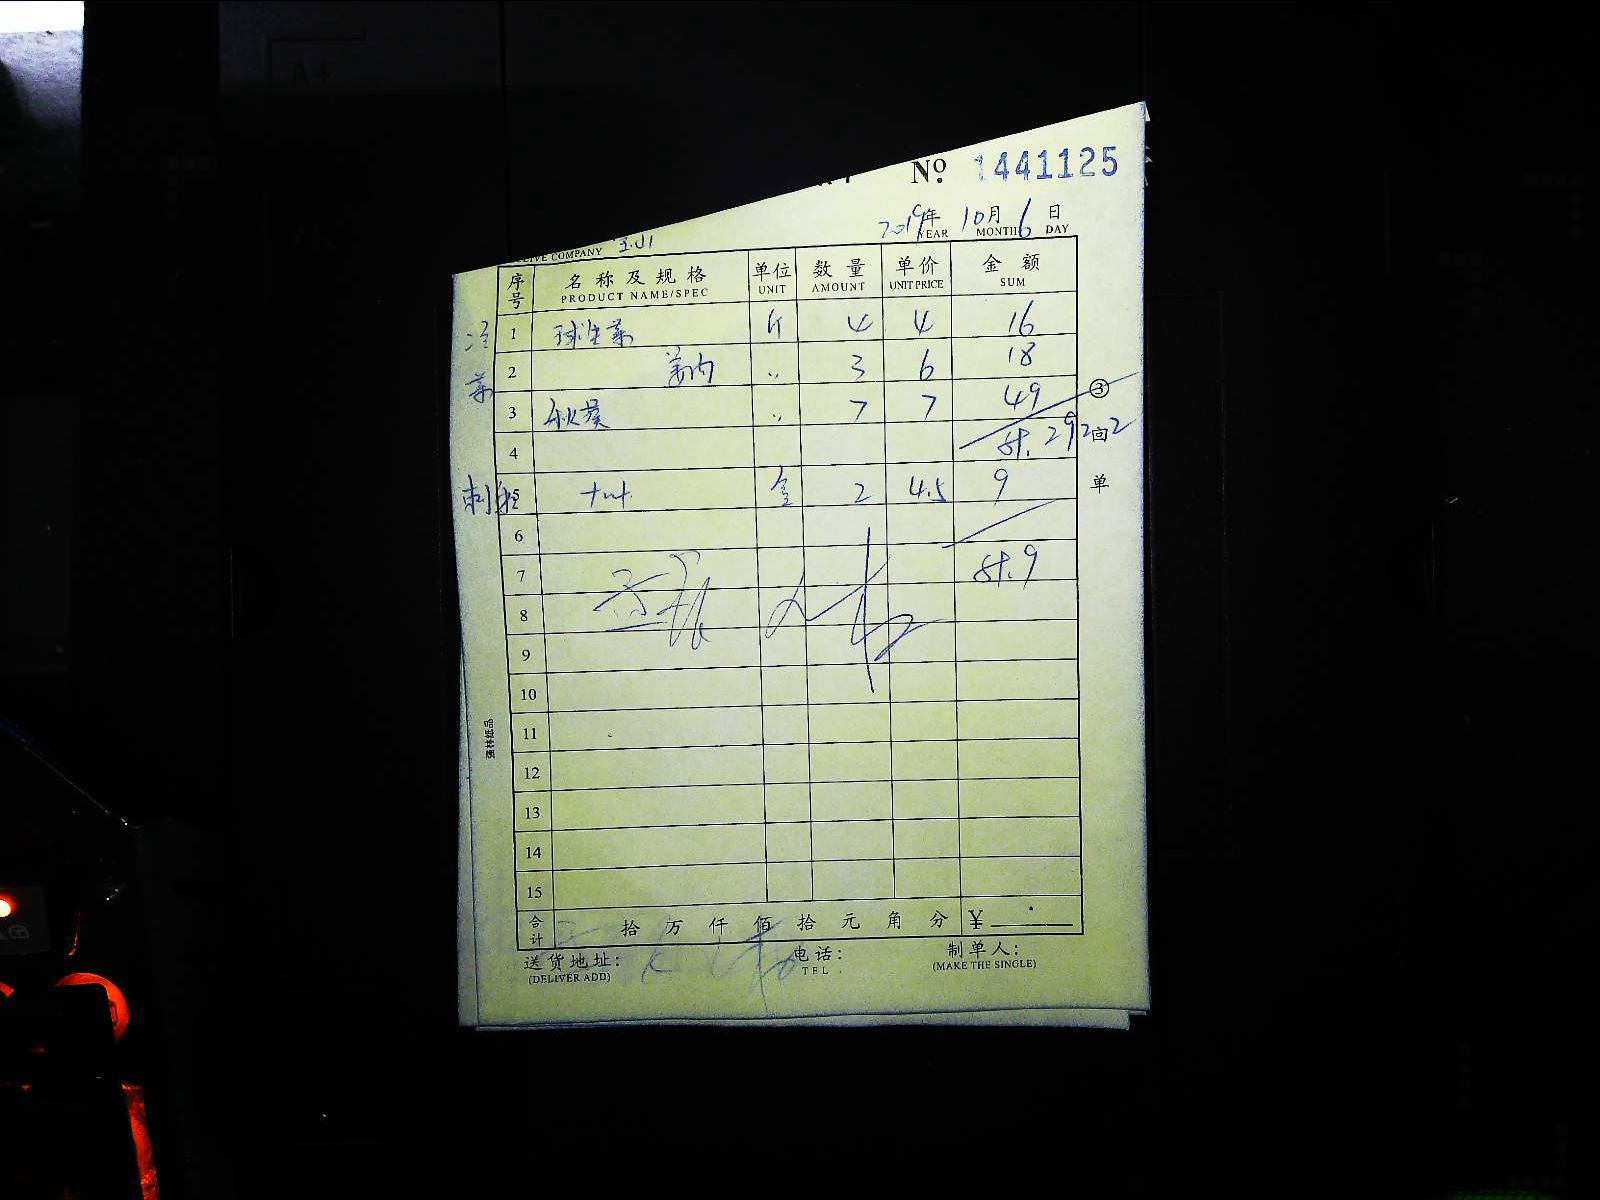 No. 1441125
2019年 10月 6日
YEAR MONTH DAY
COMPANY 玉山
序号 名称及规格 单位 数量 单价 金额
PRODUCT NAME/SPEC UNIT AMOUNT UNIT PRICE SUM
冷菜
1 球生菜 斤 4 4 16
2 姜肉 〃 3 6 18
3 秋葵 〃 7 7 49
③回单
4
刺身
5 盒 2 4.5 9
6
7 计.9
8
9
10
11
12
13
14
15
强林纸品
合计 拾 万 仟 佰 拾 元 角 分 ¥
送货地址: 电话: 制单人:
(DELIVER ADD) TEL (MAKE THE SINGLE)
A4